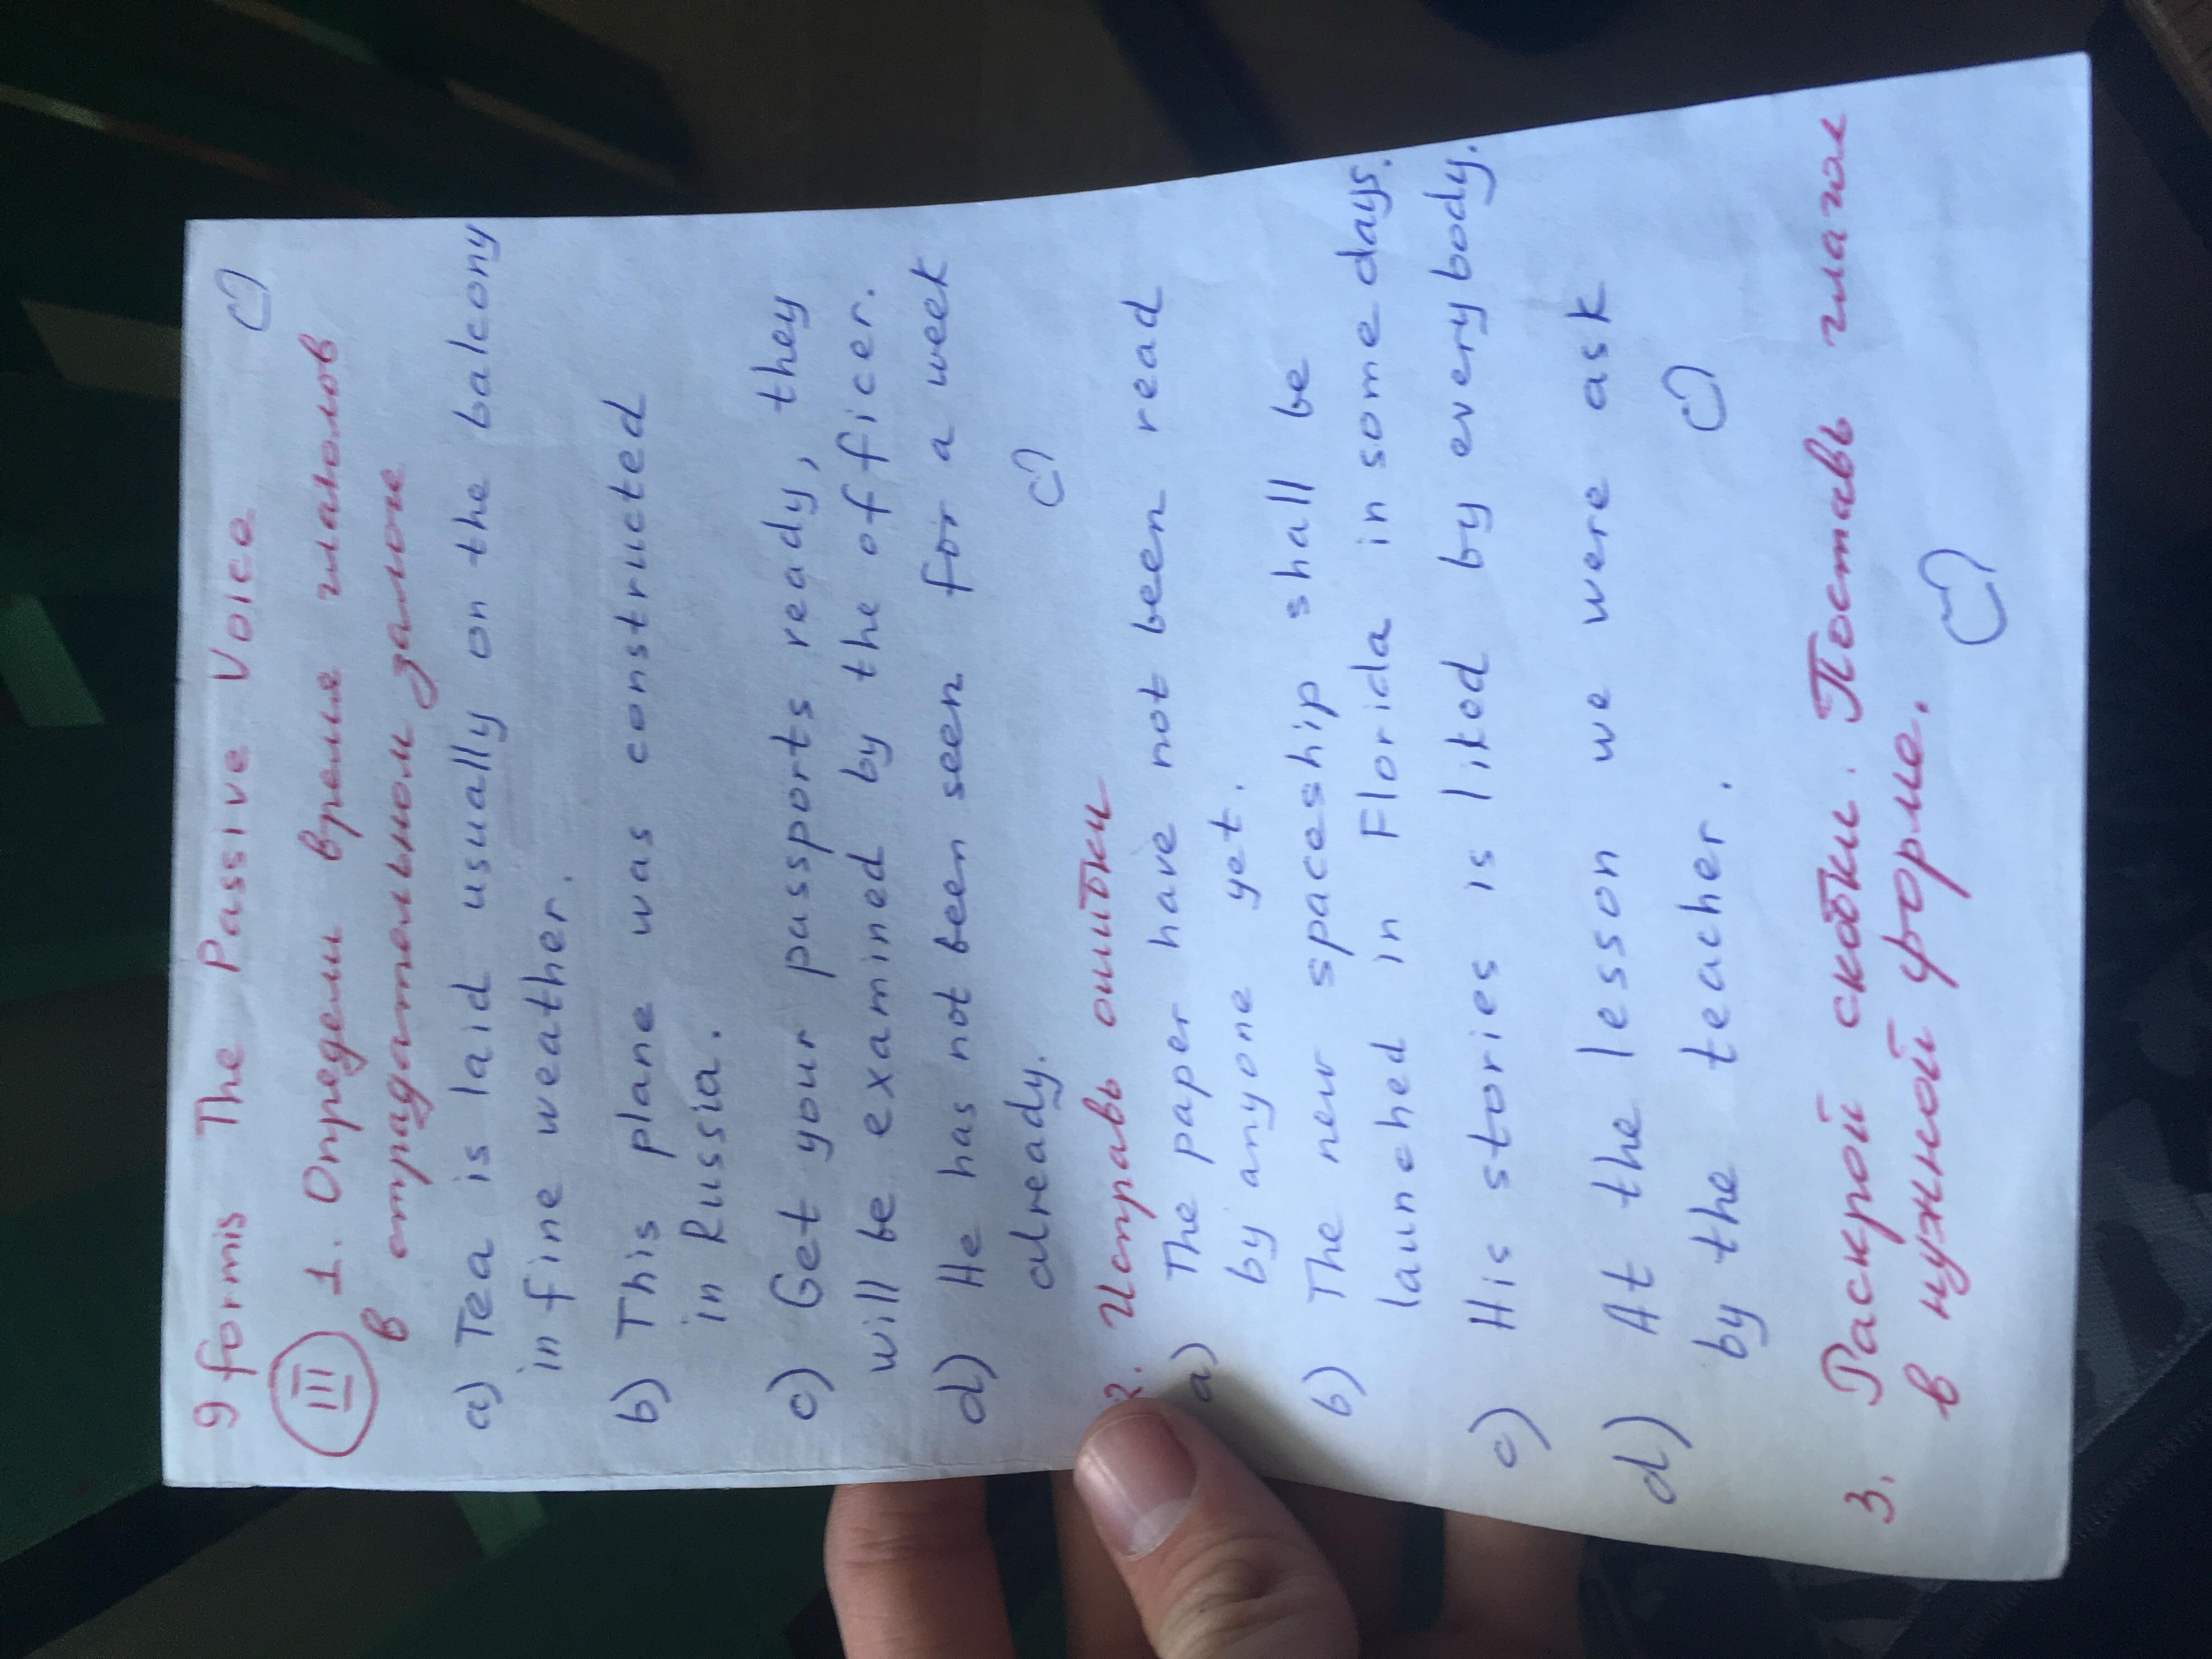 9 formis The Passive Voice
III 1. Определи время глаголов
в страдательном залоге
a) Tea is laid usually on the balcony
in fine weather.
b) This plane was constructed
in Russia.
c) Get your passports ready, they
will be examined by the officer.
d) He has not been seen for a week
already.
2. Исправь ошибки
a) The paper have not been read
by anyone yet.
b) The new spaceship shall be
launched in Florida in some days.
c) His stories is liked by everybody.
d) At the lesson we were ask
by the teacher.
3. Раскрой скобки. Поставь глагол
в нужной форме.